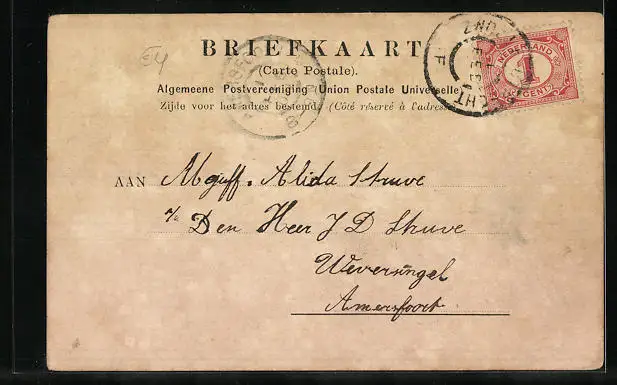 E4
BRIEFKAART
(Carte Postale).
Algemeene Postvereeniging (Union Postale Universelle)
Zijde voor het adres bestemd. (Côté réservé à l'adresse
NEDERLAND
1
CENT
AAN Mejuff. Alida Struve
a/a Den Heer J D Struve
Weversingel
Amersfoort